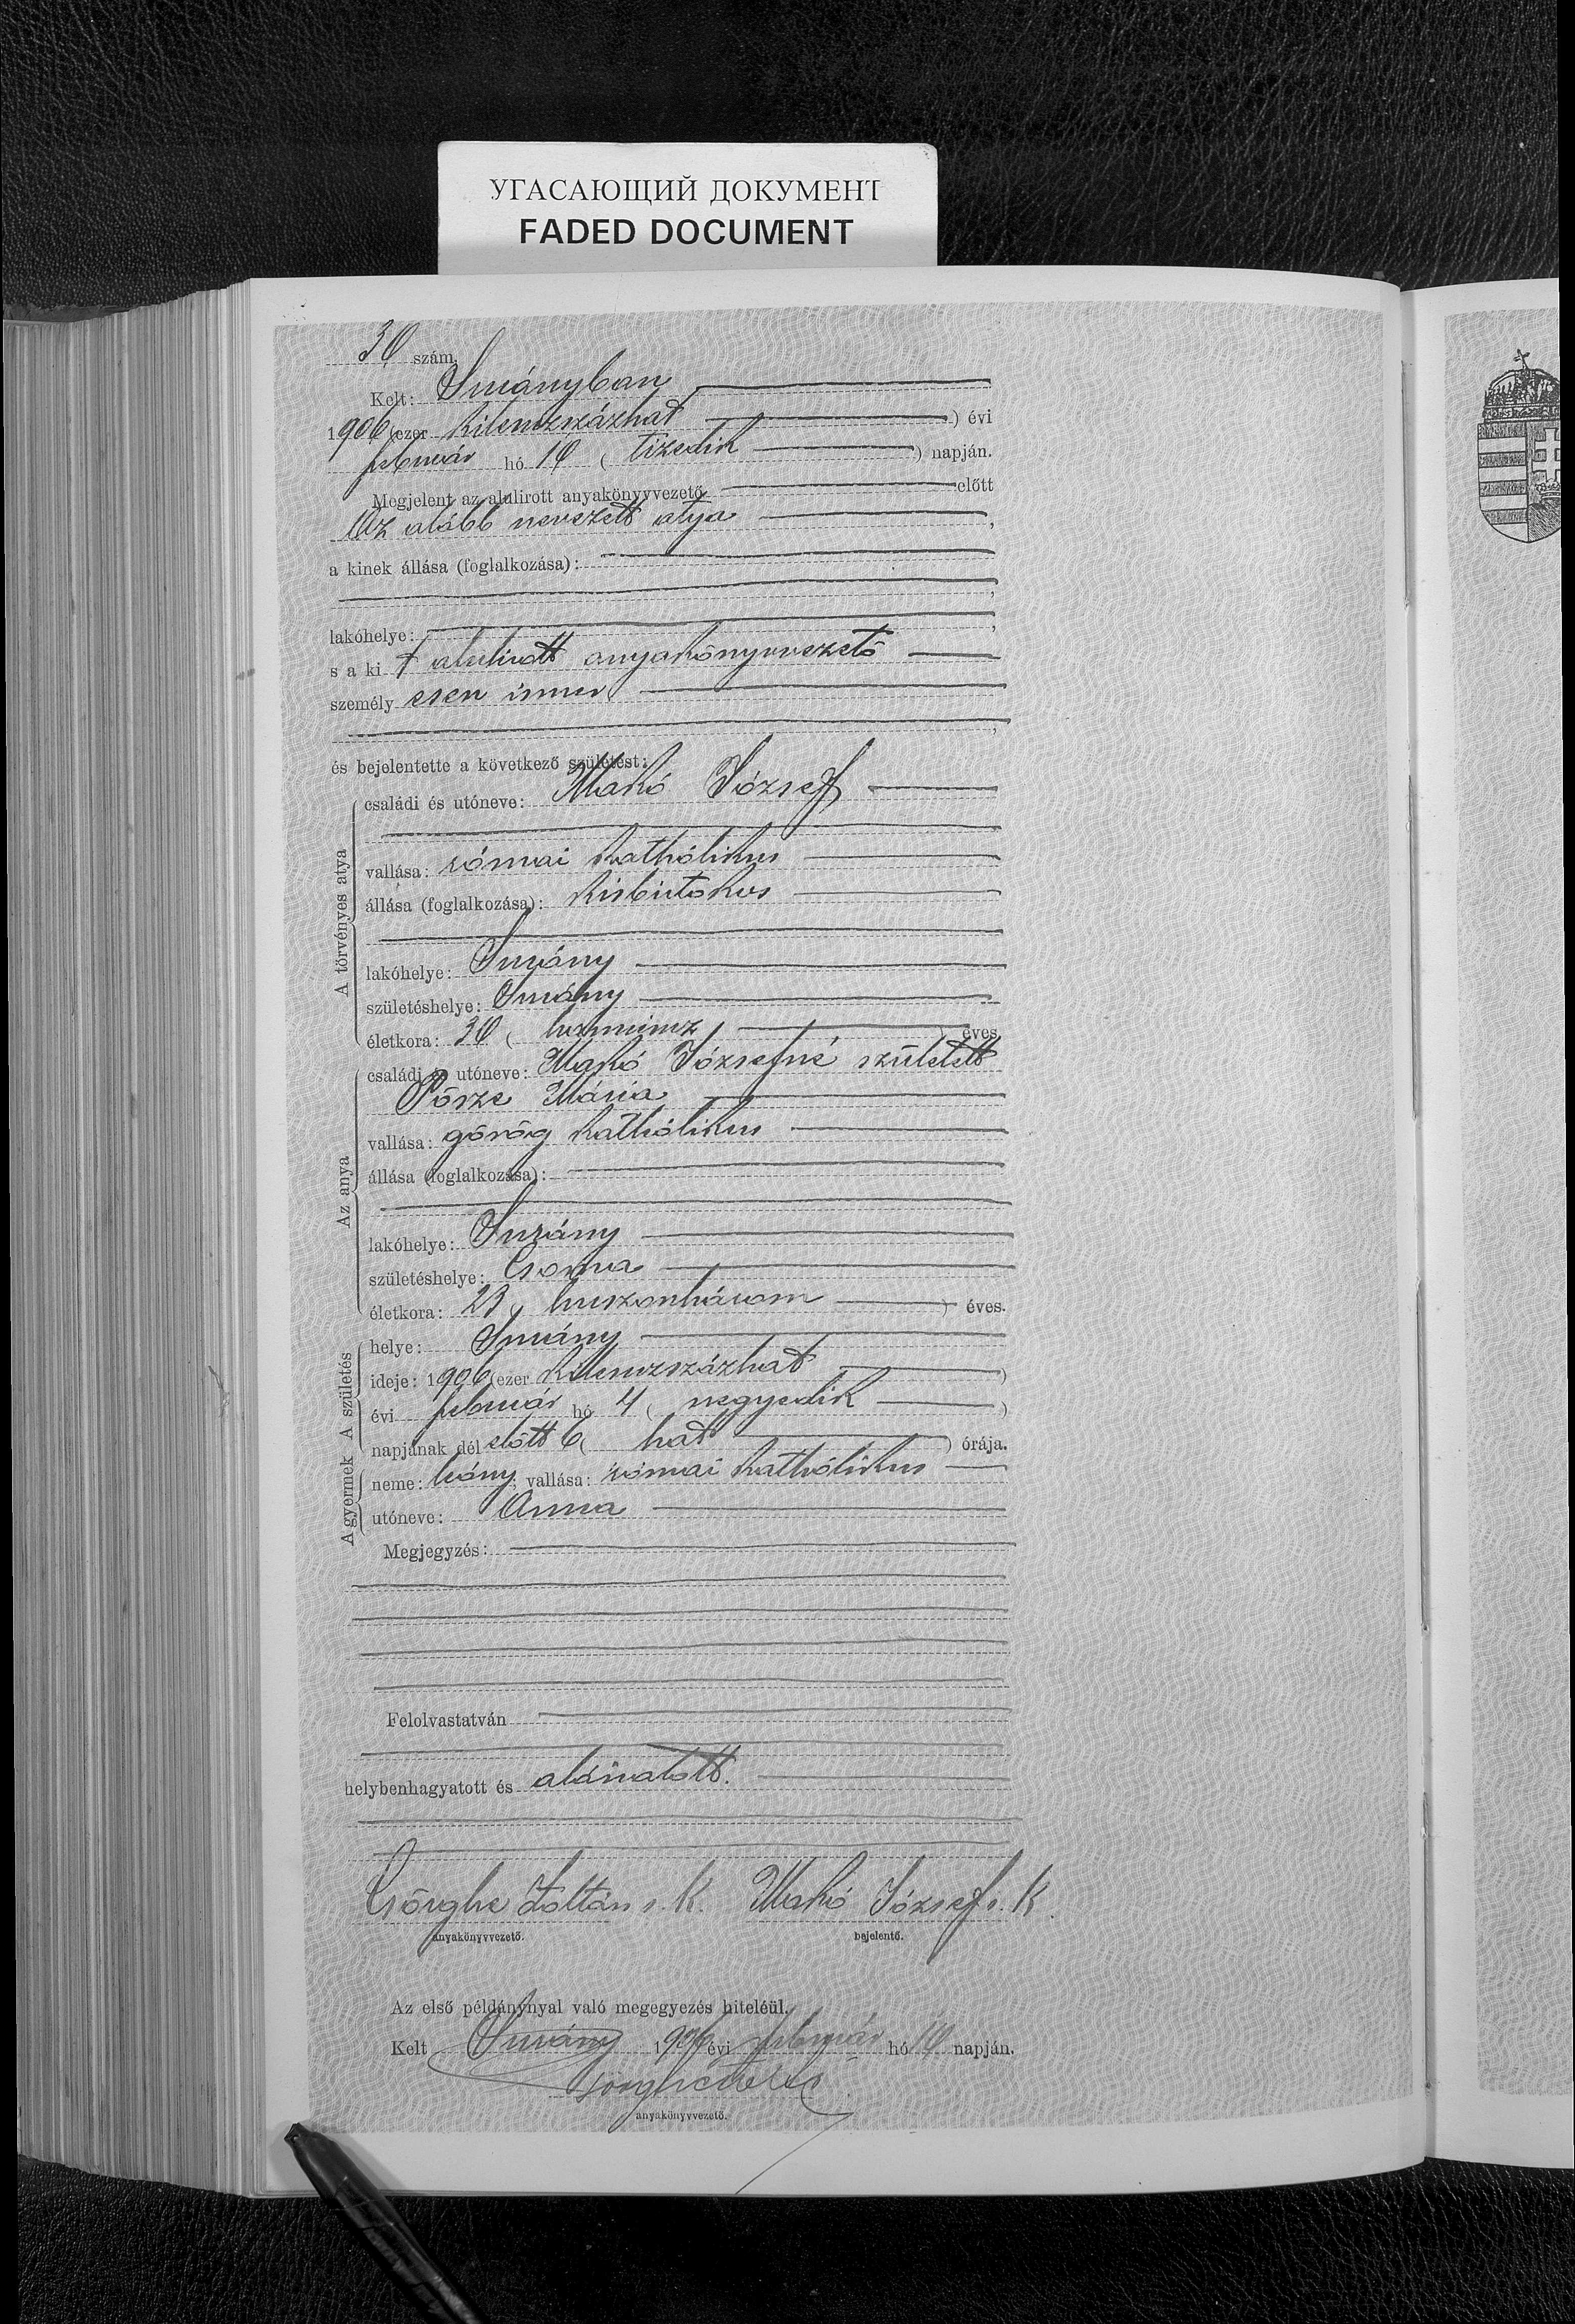 УГАСАЮЩИЙ ДОКУМЕНТ
FADED DOCUMENT
30 szám.
Kelt: Surányban
1906 (ezer kilenczszázhat) évi
február hó 10 (tizedik) napján.
Megjelent az alulirott anyakönyvvezető előtt
Az alább nevezett atya,
a kinek állása (foglalkozása):
lakóhelye:
s a ki t alulirott anyakönyvvezető
személy esen ismer
és bejelentette a következő születést:
A törvényes atya
családi és utóneve: Makó József
vallása: római katholikus
állása (foglalkozása): kisbirtokos
lakóhelye: Surány
születéshelye: Surány
életkora: 30 (harmincz) éves.
Az anya
családi és utóneve: Makó Józsefné született
Pősze Mária
vallása: görög katholikus
állása (foglalkozása):
lakóhelye: Surány
születéshelye: Csorna
életkora: 23 (huszonhárom) éves.
A születés
helye: Surány
ideje: 1906 (ezer kilenczszázhat)
évi február hó 4 (negyedik)
napjának dél előtt 6 (hat) órája.
A gyermek
neme: leány; vallása: római katholikus
utóneve: Anna
Megjegyzés:
Felolvastatván
helybenhagyatott és aláiratott.
Zoltán s. k. Makó József s. k.
anyakönyvvezető. bejelentő.
Az első példánynyal való megegyezés hiteléül.
Kelt Surány 1906 évi február hó 10 napján.
anyakönyvvezető.